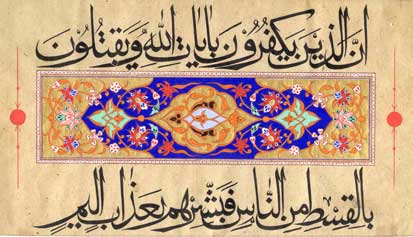 انّ الذين يكفرون بايات الله ويقتلون
بالقسط من الناس فبشّرهم بعذاب اليم